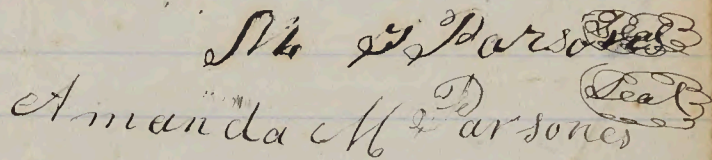 Parsons Seal
Amanda M Parsones Seal